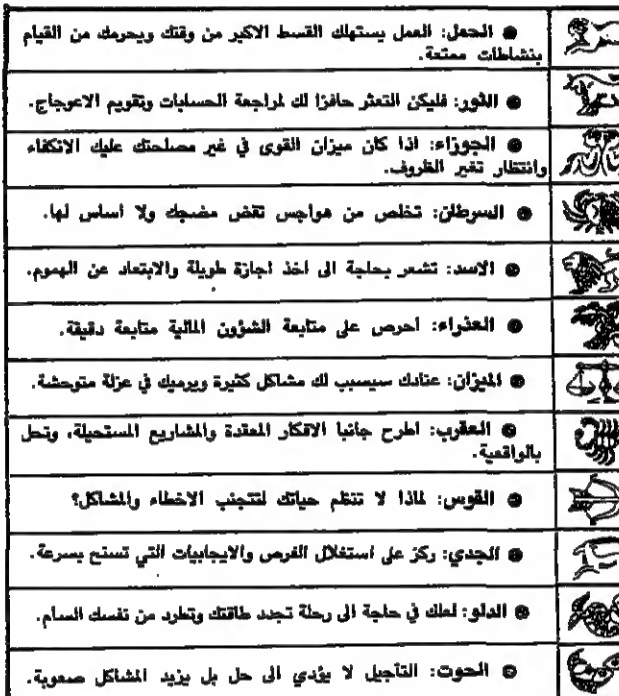 ● الحمل: العمل يستهلك القسط الاكبر من وقتك ويحرمك من القيام
بنشاطات ممتعة.
● الثور: فليكن التعثر حافزا لك لمراجعة الحسابات وتقويم الاعوجاج.
● الجوزاء: اذا كان ميزان القوى في غير مصلحتك عليك الانكفاء
وانتظار تغير الظروف.
● السرطان: تخلص من هواجس تقض مضجعك ولا اساس لها.
● الاسد: تشعر بحاجة الى اخذ اجازة طويلة والابتعاد عن الهموم.
● العذراء: احرص على متابعة الشؤون المالية متابعة دقيقة.
● الميزان: عنادك سيسبب لك مشاكل كثيرة ويرميك في عزلة متوحشة.
● العقرب: اطرح جانبا الافكار المعقدة والمشاريع المستحيلة، وتحل
بالواقعية.
● القوس: لماذا لا تنظم حياتك لتتجنب الاخطاء والمشاكل؟
● الجدي: ركز على استغلال الفرص والايجابيات التي تسنح بسرعة.
● الدلو: لعلك في حاجة الى رحلة تجدد طاقتك وتطرد من نفسك السام.
● الحوت: التاجيل لا يؤدي الى حل بل يزيد المشاكل صعوبة.